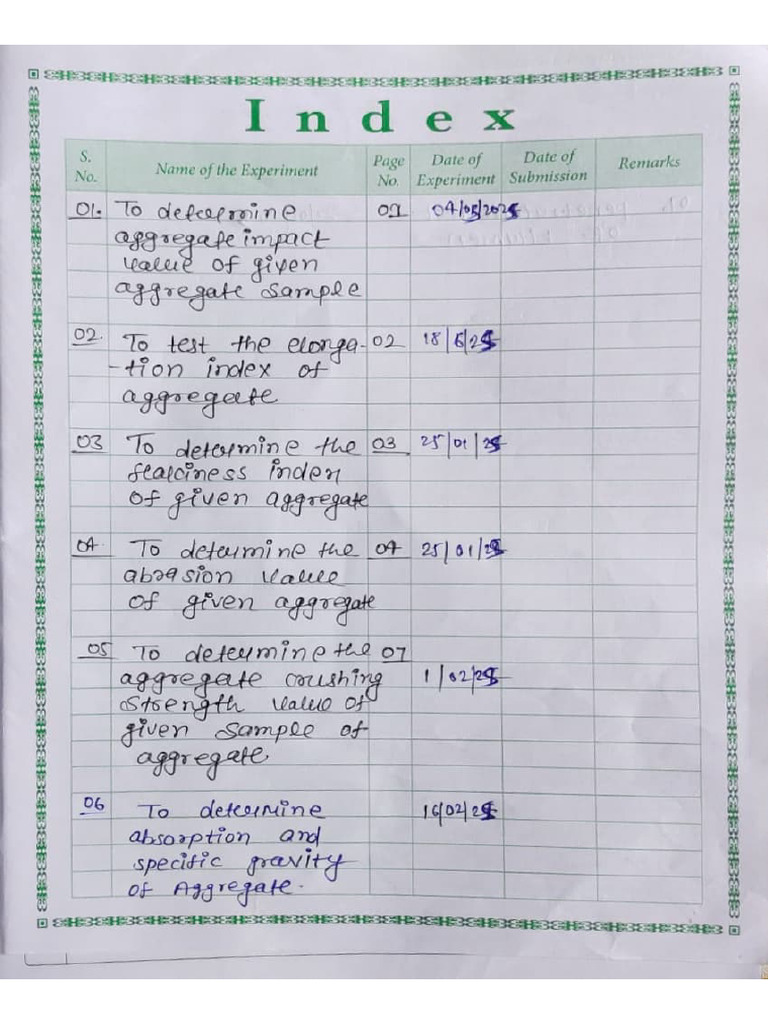 Index
S. No. Name of the Experiment Page No. Date of Experiment Date of Submission Remarks
01. To determine 01 04/05/2025
aggregate impact
value of given
aggregate sample
02. To test the elonga- 02 18/6/25
-tion index of
aggregate
03 To determine the 03 25/01/25
flakiness index
of given aggregate
04 To determine the 04 25/01/25
abrasion value
of given aggregate
05 To determine the 07
aggregate crushing 1/02/25
strength value of
given sample of
aggregate
06 To determine 16/02/25
absorption and
specific gravity
of Aggregate.